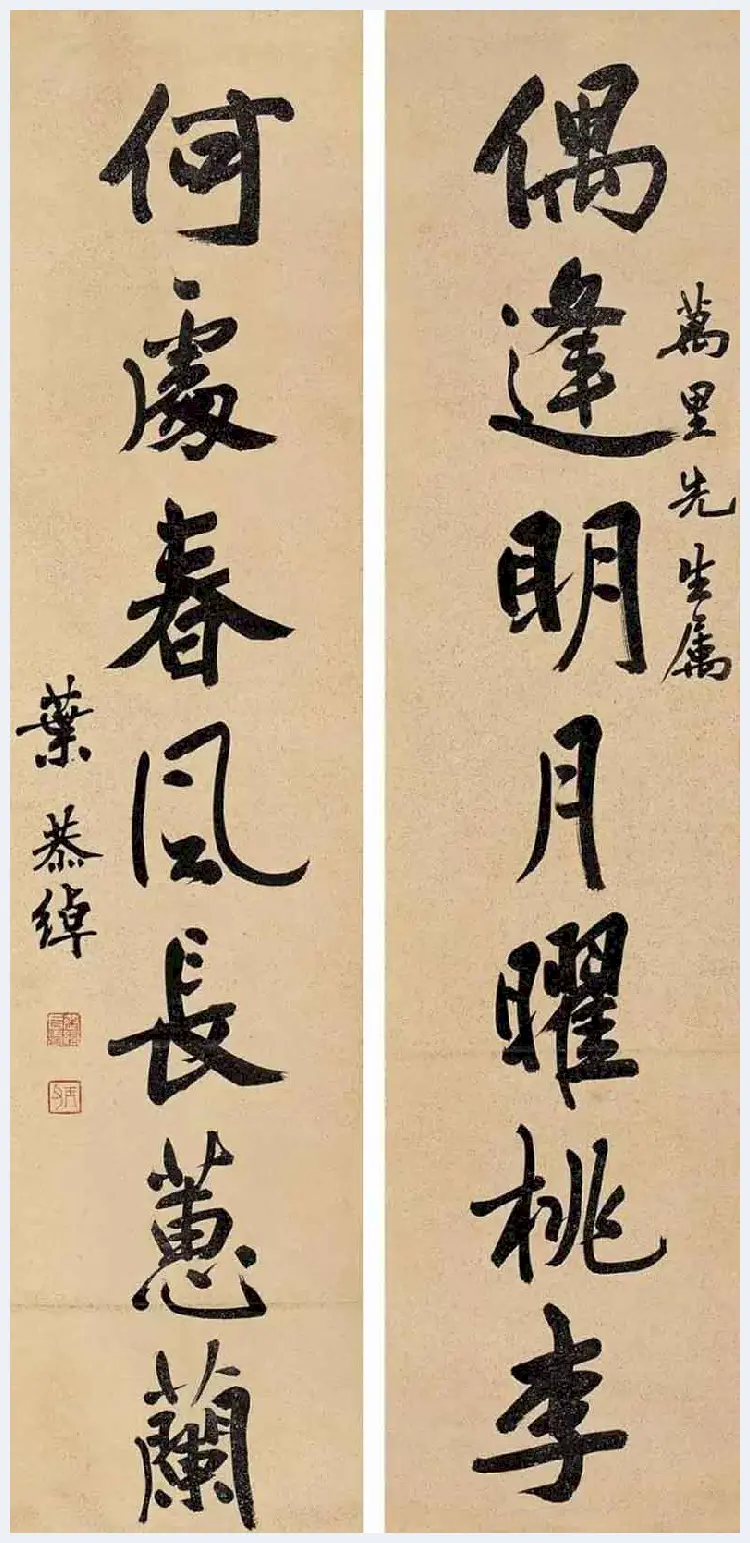 偶逢明月曜桃李
萬里先生属
何處春风長蕙蘭
葉恭綽